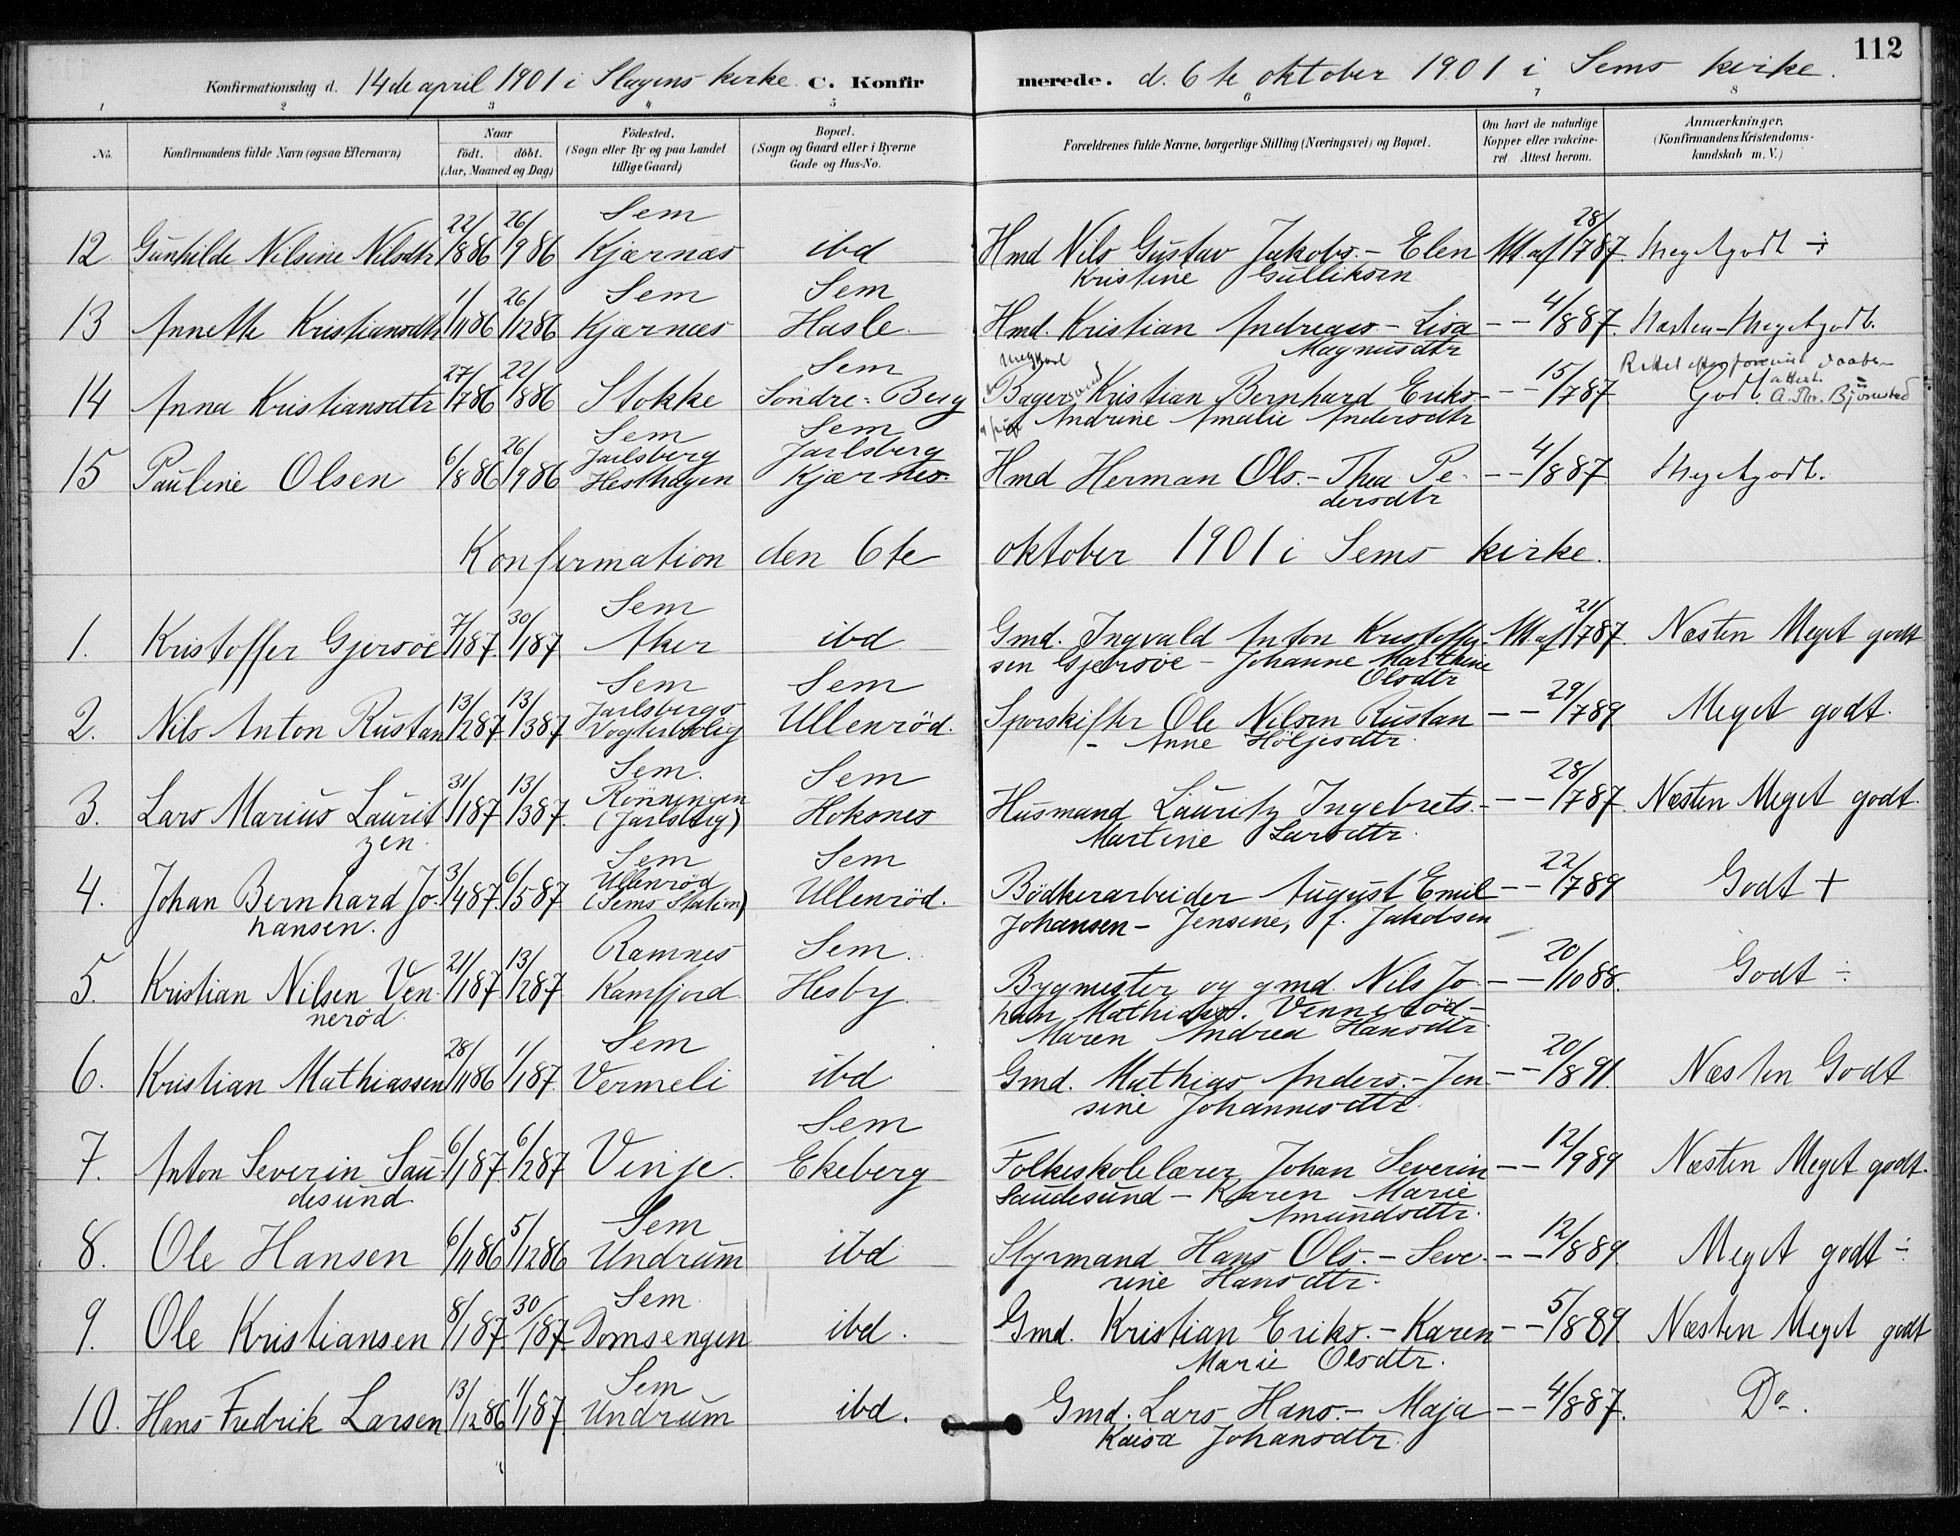 112
Konfirmationsdag d. 14de april 1901 i Slagens kirke. C. Konfirmerede. d. 6te oktober 1901 i Sems kirke.
1 2 3 4 5 6 7 8
No. Konfirmandens fulde Navn (ogsaa Efternavn) Naar født. døbt. (Aar, Maaned og Dag) Fødested. (Sogn eller By og paa Landet tillige Gaard) Bopæl. (Sogn og Gaard eller i Byerne Gade og Hus-No. Forældrenes fulde Navne, borgerlige Stilling (Næringsvei) og Bopæl. Om havt de naturlige Kopper eller vakcineret. Attest herom. Anmærkninger. (Konfirmandens Kristendomskundskab m. V.)
12 Gunhilde Nilsine Nilsdtr 22/8 86 26/9 86 Sem Kjærnæs ibd Hmd Nils Gustav Jakobs. – Elen Kristine Gulliksen Att. af 28/7 87. Megetgodt ÷
13 Annette Kristiansdtr 1/11 86 26/12 86 Sem Kjærnæs Sem Hasle Hmd. Kristian Andreas – Lisa Magnusdtr – – 4/8 87. Næsten Megetgodt.
14 Anna Kristiansdtr 27/7 86 22/8 86 Stokke Sem Söndre-Berg Ungkarl Bager Kristian Bernhard Eriks. – Andrine Amalie Andersdtr – – 15/7 87 Godt. Rettet efter forevist daabsattest. Bjørnstad
15 Pauline Olsen 6/8 86 26/9 86 Sem Jarlsberg Hesthagen Sem Jarlsberg Kjærnæs Hmd Herman Ols. – Thea Pedersdtr – – 4/8 87 Megetgodt.
Konfirmation den 6te oktober 1901 i Sems kirke.
1. Kristoffer Gjersöe 7/1 87. 30/1 87 Sem Aker ibd Gmd. Ingvald Anton Kristoffersen Gjersöe – Johanne Marthine Olsdtr Att. af 21/7 87. Næsten Meget godt
2. Nils Anton Rustan 13/2 87 13/3 87 Sem Jarlsbergs Vogterbolig Sem Ullenröd. Sporskifter Ole Nilsen Rustan – Anne Höljesdtr. – – 29/7 89 Meget godt.
3. Lars Marius Lauritzen. 31/1 87 13/3 87. Sem. Rönningen (Jarlsberg) Sem Hoksnes Husmand Lauritz Ingebrets. – Martine Larsdtr. – – 28/7 87. Næsten Meget godt.
4. Johan Bernhard Johansen. 3/4 87. 6/5 87 Sem Ullenröd (Sems Station) Sem Ullenröd. Bödkerarbeider August Emil Johansen – Jensine, f. Jakobsen – – 22/7 89 Godt +
5. Kristian Nilsen Vennerød. 21/1 87. 13/2 87. Ramnes Kamfjord Sem. Hesby. Bygmester og gmd. Nils Johan Mathias. Venneröd – Maren Andrea Hansdtr. – – 20/10 88. Godt ÷
6. Kristian Mathiassen 28/11 86 1/1 87. Sem Vermeli ibd Gmd. Mathias Anders. – Jensine Johannesdtr. – – 20/8 91. Næsten Godt
7. Anton Severin Saudesund 6/1 87. 6/2 87. Vinje. Sem Ekeberg Folkeskolelærer Johan Severin Saudesund – Karen Marie Amundsdtr. – – 12/9 89 Næsten Meget godt.
8. Ole Hansen 6/11 86 5/12 86 Sem Undrum ibd Styrmand Hans Ols. – Severine Hansdtr. – – 12/8 89. Meget godt ÷
9. Ole Kristiansen 8/1 87. 30/1 87. Sem Domsengen ibd. Gmd. Kristian Eriks. – Karen Marie Olsdtr. – – 5/8 89. Næsten Meget godt
10. Hans Fredrik Larsen 13/12 86 1/1 87 Sem Undrum ibd. Gmd. Lars Hans. – Maja Kaisa Johansdtr. – – 4/8 87. Do.